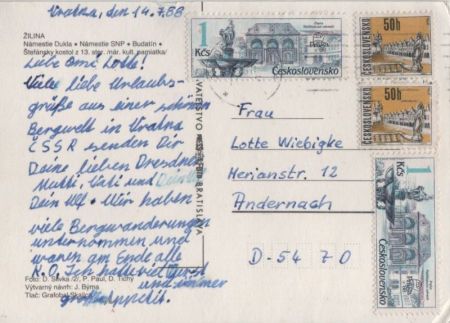 Vratna, den 14.7.88
ŽILINA
Námestie Dukla • Námestie SNP • Budatín •
Štefánsky kostol z 13. stor. nár. kult. pamiatka/
Liebe Omi Lotte!
Viele liebe Urlaubs-
grüße aus einer schönen
Bergwelt in Vratna
ČSSR senden Dir
Deine lieben Dresdner
Mutti, Vati und
Dein Ulf. Wir haben
viele Bergwanderungen
unternommen und
waren am Ende alle
K.O. Ich hatte viel Durst
und immer
großen Appetit.
Foto: D. Slivka /2/, P. Paul, D. Tichý
Výtvarný návrh: J. Býma
Tlač: Grafobal Skalica
BRATISLAVA
1
Kčs
Československo
50h
ČESKOSLOVENSKO
50h
ČESKOSLOVENSKO
1
Kčs
Československo
Frau
Lotte Wiebigke
Herianstr. 12
Andernach
D-5470